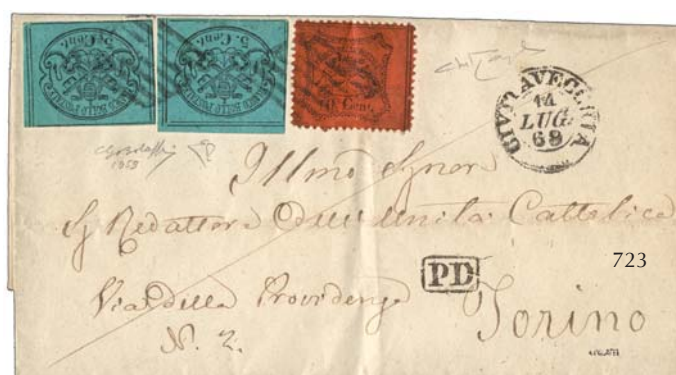 5. Cent. 5. Cent.
10 Cent.
CIVITAVECCHIA
14
LUG.
68
1959
Illmo Signore
Redattore Dell Unita Cattolica
723
PD
Via della Providenza
N. 2.
Torino